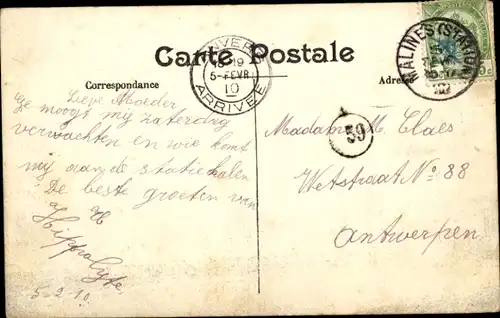 Carte Postale
Correspondance
Adresse
ANVERS
19
5-FEVR
10
ARRIVÉE
MALINES (STATION)
59
Lieve Moeder
Ge moogt my zaterdag
verwachten en wie komt
my aan de statie halen
De beste groeten van
Hippolyte
5-2-10
Madame M. Claes
Wetstraat No 88
Antwerpen